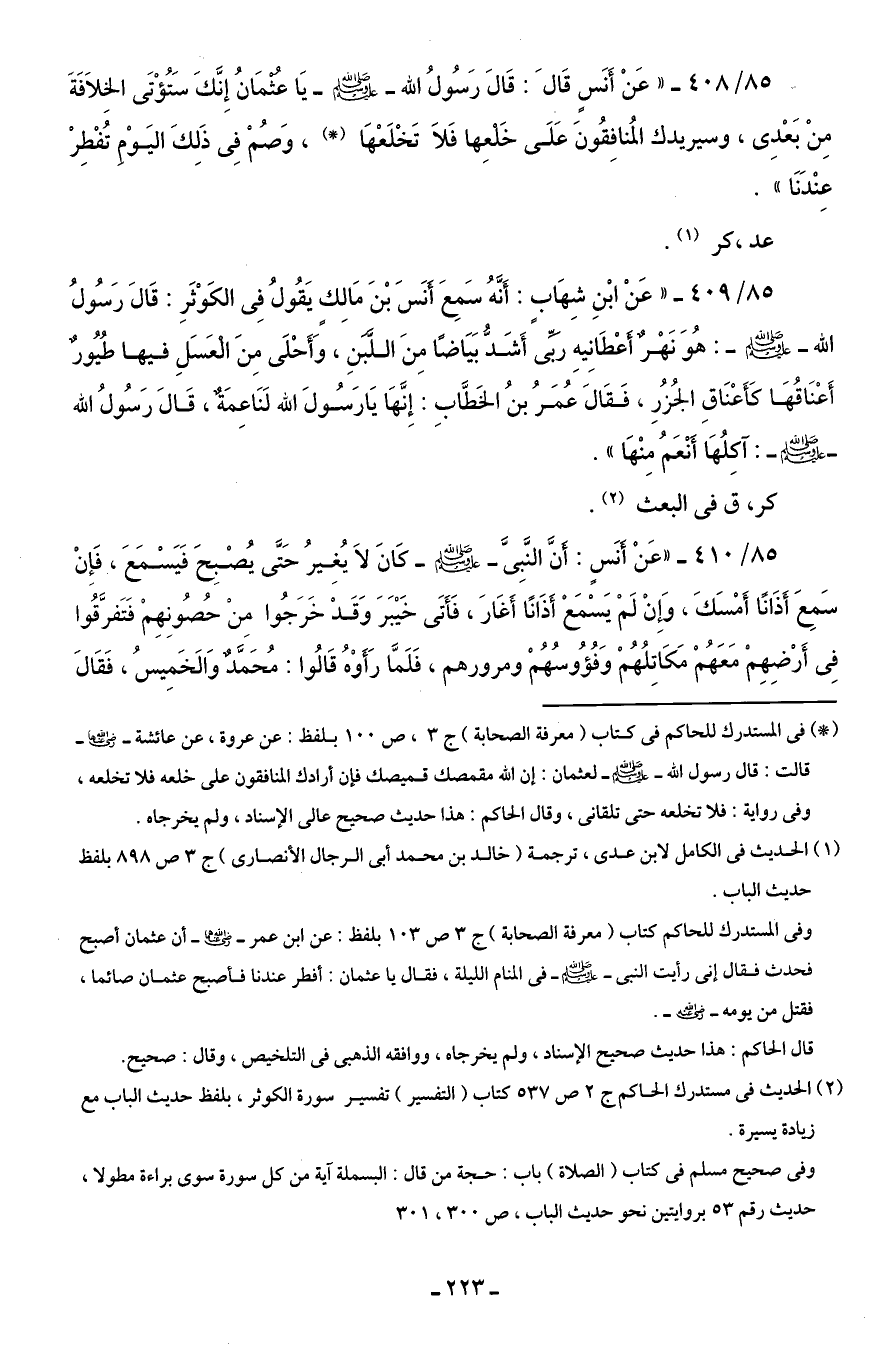 ٤٠٨/٨٥ ـ « عَنْ أَنَسٍ قَالَ َ : قَالَ رَسُولُ الله ـ ﷺ ـ يَا عثْمَانُ إِنَّكَ سَتُؤْتَى الخِلاَفَةَ
مِنْ بَعْدِى ، وسيريدك المُنافِقُونَ عَلَـى خَلْعِها فَلاَ تَخْلَعْهَا (*) ، وَصُمْ فِى ذَلِكَ اليَـوْمِ تُفْطِرْ
عِنْدَنَا » .
عد ،كر (١) .
٤٠٩/٨٥ ـ « عَنْ ابْنِ شِهَابٍ : أَنَّهُ سَمِعَ أَنَسَ بْنَ مَالكٍ يَقُولُ فِى الكَوْثَرِ : قَالَ رَسُولُ
الله ـ ﷺ ـ : هُوَ نَهْـرٌ أَعْطَانِيهِ رَبِّى أَشَدُّ بَيَاضًا مِنَ اللَّبَنِ ، وَأَحْلَى مِنَ الْعَسَلِ فـيهـا طُيُورٌ
أَعْنَاقُهَـا كَأَعْنَاقِ الجُزُرِ ، فَـقَالَ عُمَـرُ بنُ الخَطَّابِ : إِنَّهَا يَارَسُـولَ الله لَنَاعِمَةٌ ، قَـالَ رَسُولُ الله
ـ ﷺ ـ : آكِلُهَا أَنْعَمُ مِنْهَا » .
كر، ق فى البعث (٢) .
٤١٠/٨٥ ـ «عَنْ أَنَسٍ : أَنَّ النَّبِىَّ ـ ﷺ ـ كَانَ لاَ يُغِـيرُ حَتَّى يُصْـبِحَ فَيَسْـمَعَ ، فَإِنْ
سَمِعَ أَذَانًا أَمْسَكَ ، وَإِنْ لَمْ يَسْمَعْ أَذَانًا أَغَارَ ، فَأَتَى خَيْبَرَ وَقَـدْ خَرَجُوا مِنْ حُصُونِهِمْ فَتَفرَّقُوا
فِى أَرْضِهِمْ مَعَهُمْ مَكَاتِلُهُمْ وَفُؤُوسُهُمْ ومرورهم ، فَلَمَّا رَأَوْهُ قَالُوا : مُحَمَّدٌ وَالخَمِيسُ ، فَقَالَ
(*) فى المستدرك للحاكم فى كـتاب ( معرفة الصحابة ) ج ٣ ، ص ١٠٠ بـلفظ : عن عروة ، عن عائشة ـ رضي الله عنها ـ
قالت : قال رسول الله ـ ﷺ ـ لعثمان : إن الله مقمصك قـميصك فإن أرادك المنافقون على خلعه فلا تخلعه ،
وفى رواية : فلا تخلعه حتى تلقانى ، وقال الحاكم : هذا حديث صحيح عالى الإسناد ، ولم يخرجاه .
(١) الحـديث فى الكامل لابن عـدى ، ترجمة ( خالـد بن محمد أبى الـرجال الأنصـارى ) ج ٣ ص ٨٩٨ بلفظ
حديث الباب .
وفى المستدرك للحاكم كتاب ( معرفة الصحابة ) ج ٣ ص ١٠٣ بلفظ : عن ابن عمر ـ رضي الله عنهما ـ أن عثمان أصبح
فحدث فـقال إنى رأيت النبى ـ ﷺ ـ فى المنام الليلة ، فقال يا عثمان : أفطر عندنا فـأصبح عثمـان صائما ،
فقتل من يومه ـ رضي الله عنه ـ .
قال الحاكم : هذا حديث صحيح الإسناد ، ولم يخرجاه ، ووافقه الذهبى فى التلخيص ، وقال : صحيح.
(٢) الحديث فى مستدرك الحـاكم ج ٢ ص ٥٣٧ كتاب ( التفسير ) تفسيـر سورة الكوثر ، بلفظ حديث الباب مع
زيادة يسيرة .
وفى صحيح مسلم فى كتاب ( الصلاة ) باب : حـجة من قال : البسملة آية من كل سورة سوى براءة مطولا ،
حديث رقم ٥٣ بروايتين نحو حديث الباب ، ص ٣٠٠ ، ٣٠١
ـ ٢٢٣ ـ